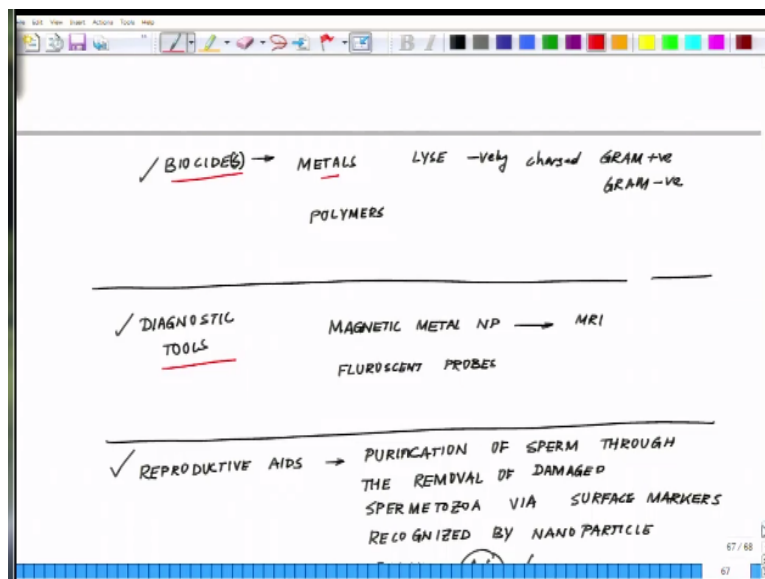 Edit View Insert Actions Tools Help
✓ BIOCIDE(S) → METALS LYSE -vely charged GRAM +ve
GRAM -ve
POLYMERS
✓ DIAGNOSTIC
TOOLS
MAGNETIC METAL NP → MRI
FLUROSCENT PROBES
✓ REPRODUCTIVE AIDS → PURIFICATION OF SPERM THROUGH
THE REMOVAL OF DAMAGED
SPERMETOZOA VIA SURFACE MARKERS
RECOGNIZED BY NANOPARTICLE
67 / 68
67